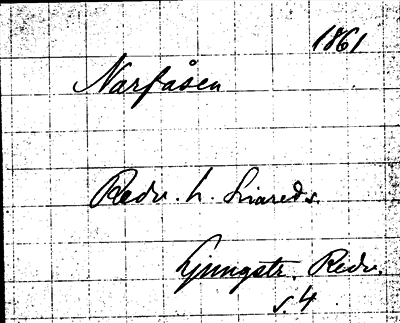 1861
Narfåsen
Redv. h. Liareds.
Ljungstr. Redv.
s. 4